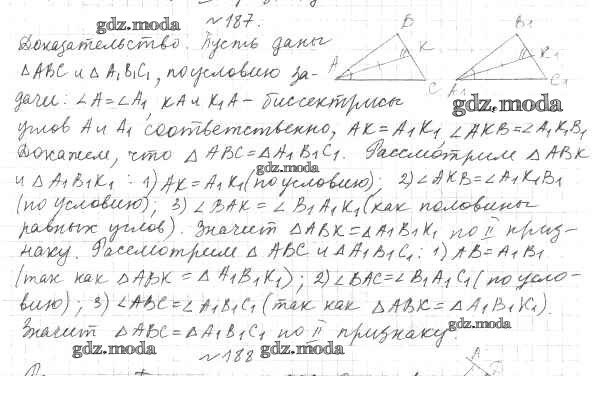 gdz.moda № 187.
Доказательство. Пусть даны
△ABC и △A₁B₁C₁, по условию за-
дачи: ∠A=∠A₁, KA и K₁A - биссектрисы
углов A и A₁ соответственно, AK=A₁K₁, ∠AKB=∠A₁K₁B₁
Докажем, что △ABC=△A₁B₁C₁. Рассмотрим △ABK
и △A₁B₁K₁: 1) AK=A₁K₁ (по условию); 2) ∠AKB=∠A₁K₁B₁
(по условию); 3) ∠BAK=∠B₁A₁K₁ (как половины
равных углов). Значит △ABK=△A₁B₁K₁ по II приз-
наку. Рассмотрим △ABC и △A₁B₁C₁: 1) AB=A₁B₁
(так как △ABK=△A₁B₁K₁); 2) ∠BAC=∠B₁A₁C₁ (по усло-
вию); 3) ∠ABC=∠A₁B₁C₁ (так как △ABK=△A₁B₁K₁).
Значит △ABC=△A₁B₁C₁ по II признаку.
№ 188
B
K
A
C
B₁
K₁
A₁
C₁
A
gdz.moda
gdz.moda
gdz.moda
gdz.moda
gdz.moda